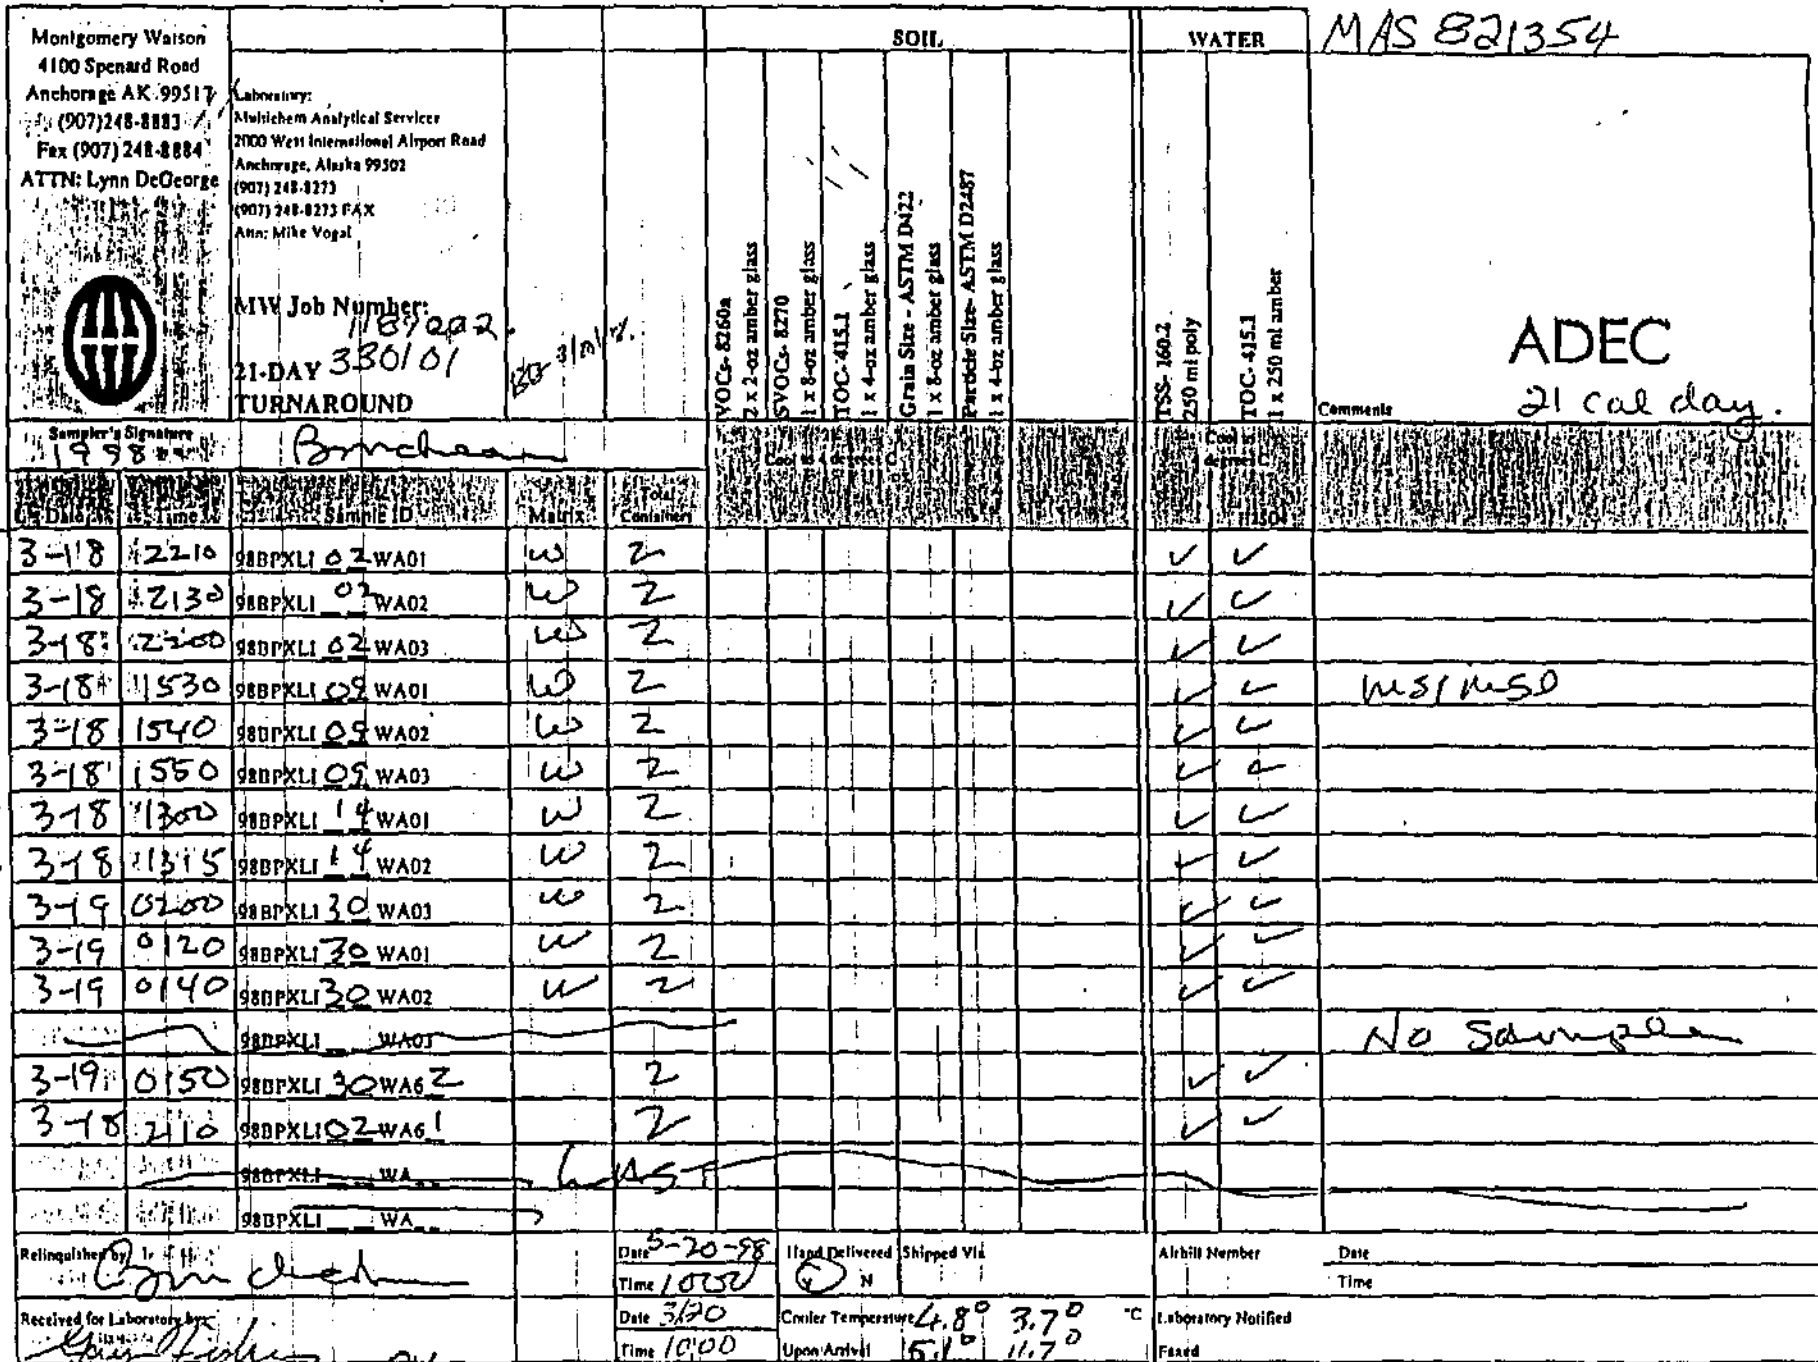 MAS 821354
Montgomery Watson
4100 Spenard Road
Anchorage AK 99517
(907)248-8883
Fax (907) 248-8884
ATTN: Lynn DeGeorge
Laboratory:
Multichem Analytical Services
2000 West International Airport Road
Anchorage, Alaska 99502
(907) 248-8273
(907) 248-8273 FAX
Attn: Mike Vogal
MW Job Number:
1189202.
330101
21-DAY
TURNAROUND
SOIL
VOCs- 8260a
2 x 2-oz amber glass
SVOCs- 8270
1 x 8-oz amber glass
TOC- 415.1
1 x 4-oz amber glass
Grain Size - ASTM D422
1 x 8-oz amber glass
Particle Size- ASTM D2487
1 x 4-oz amber glass
WATER
TSS- 160.2
250 ml poly
TOC- 415.1
1 x 250 ml amber
ADEC
Comments 21 cal day.
Sampler's Signature
1998
Date Time Sample ID Matrix Total Containers
3-18 2210 98BPXLI 02 WA01 W 2 ✓ ✓
3-18 2130 98BPXLI 02 WA02 W 2 ✓ ✓
3-18 2200 98BPXLI 02 WA03 W 2 ✓ ✓
3-18 1530 98BPXLI 09 WA01 W 2 ✓ ✓ MS/MSD
3-18 1540 98BPXLI 09 WA02 W 2 ✓ ✓
3-18 1550 98BPXLI 09 WA03 W 2 ✓ ✓
3-18 1300 98BPXLI 14 WA01 W 2 ✓ ✓
3-18 1315 98BPXLI 14 WA02 W 2 ✓ ✓
3-19 0200 98BPXLI 30 WA03 W 2 ✓ ✓
3-19 0120 98BPXLI 30 WA01 W 2 ✓ ✓
3-19 0140 98BPXLI 30 WA02 W 2 ✓ ✓
98BPXLI __ WA03 No Sample
3-19 0150 98BPXLI 30 WA6 2 2 ✓ ✓
3-18 2110 98BPXLI 02 WA6 1 2 ✓ ✓
98BPXLI __ WA__ LAST
98BPXLI __ WA__
Relinquished by
Date 3-20-98
Time 1000
Hand Delivered Y N
Shipped Via
Airbill Number
Date
Time
Received for Laboratory by:
Date 3/20
Time 10:00
Cooler Temperature 4.8° 3.7° °C
Upon Arrival 5.1° 11.7°
Laboratory Notified
Faxed